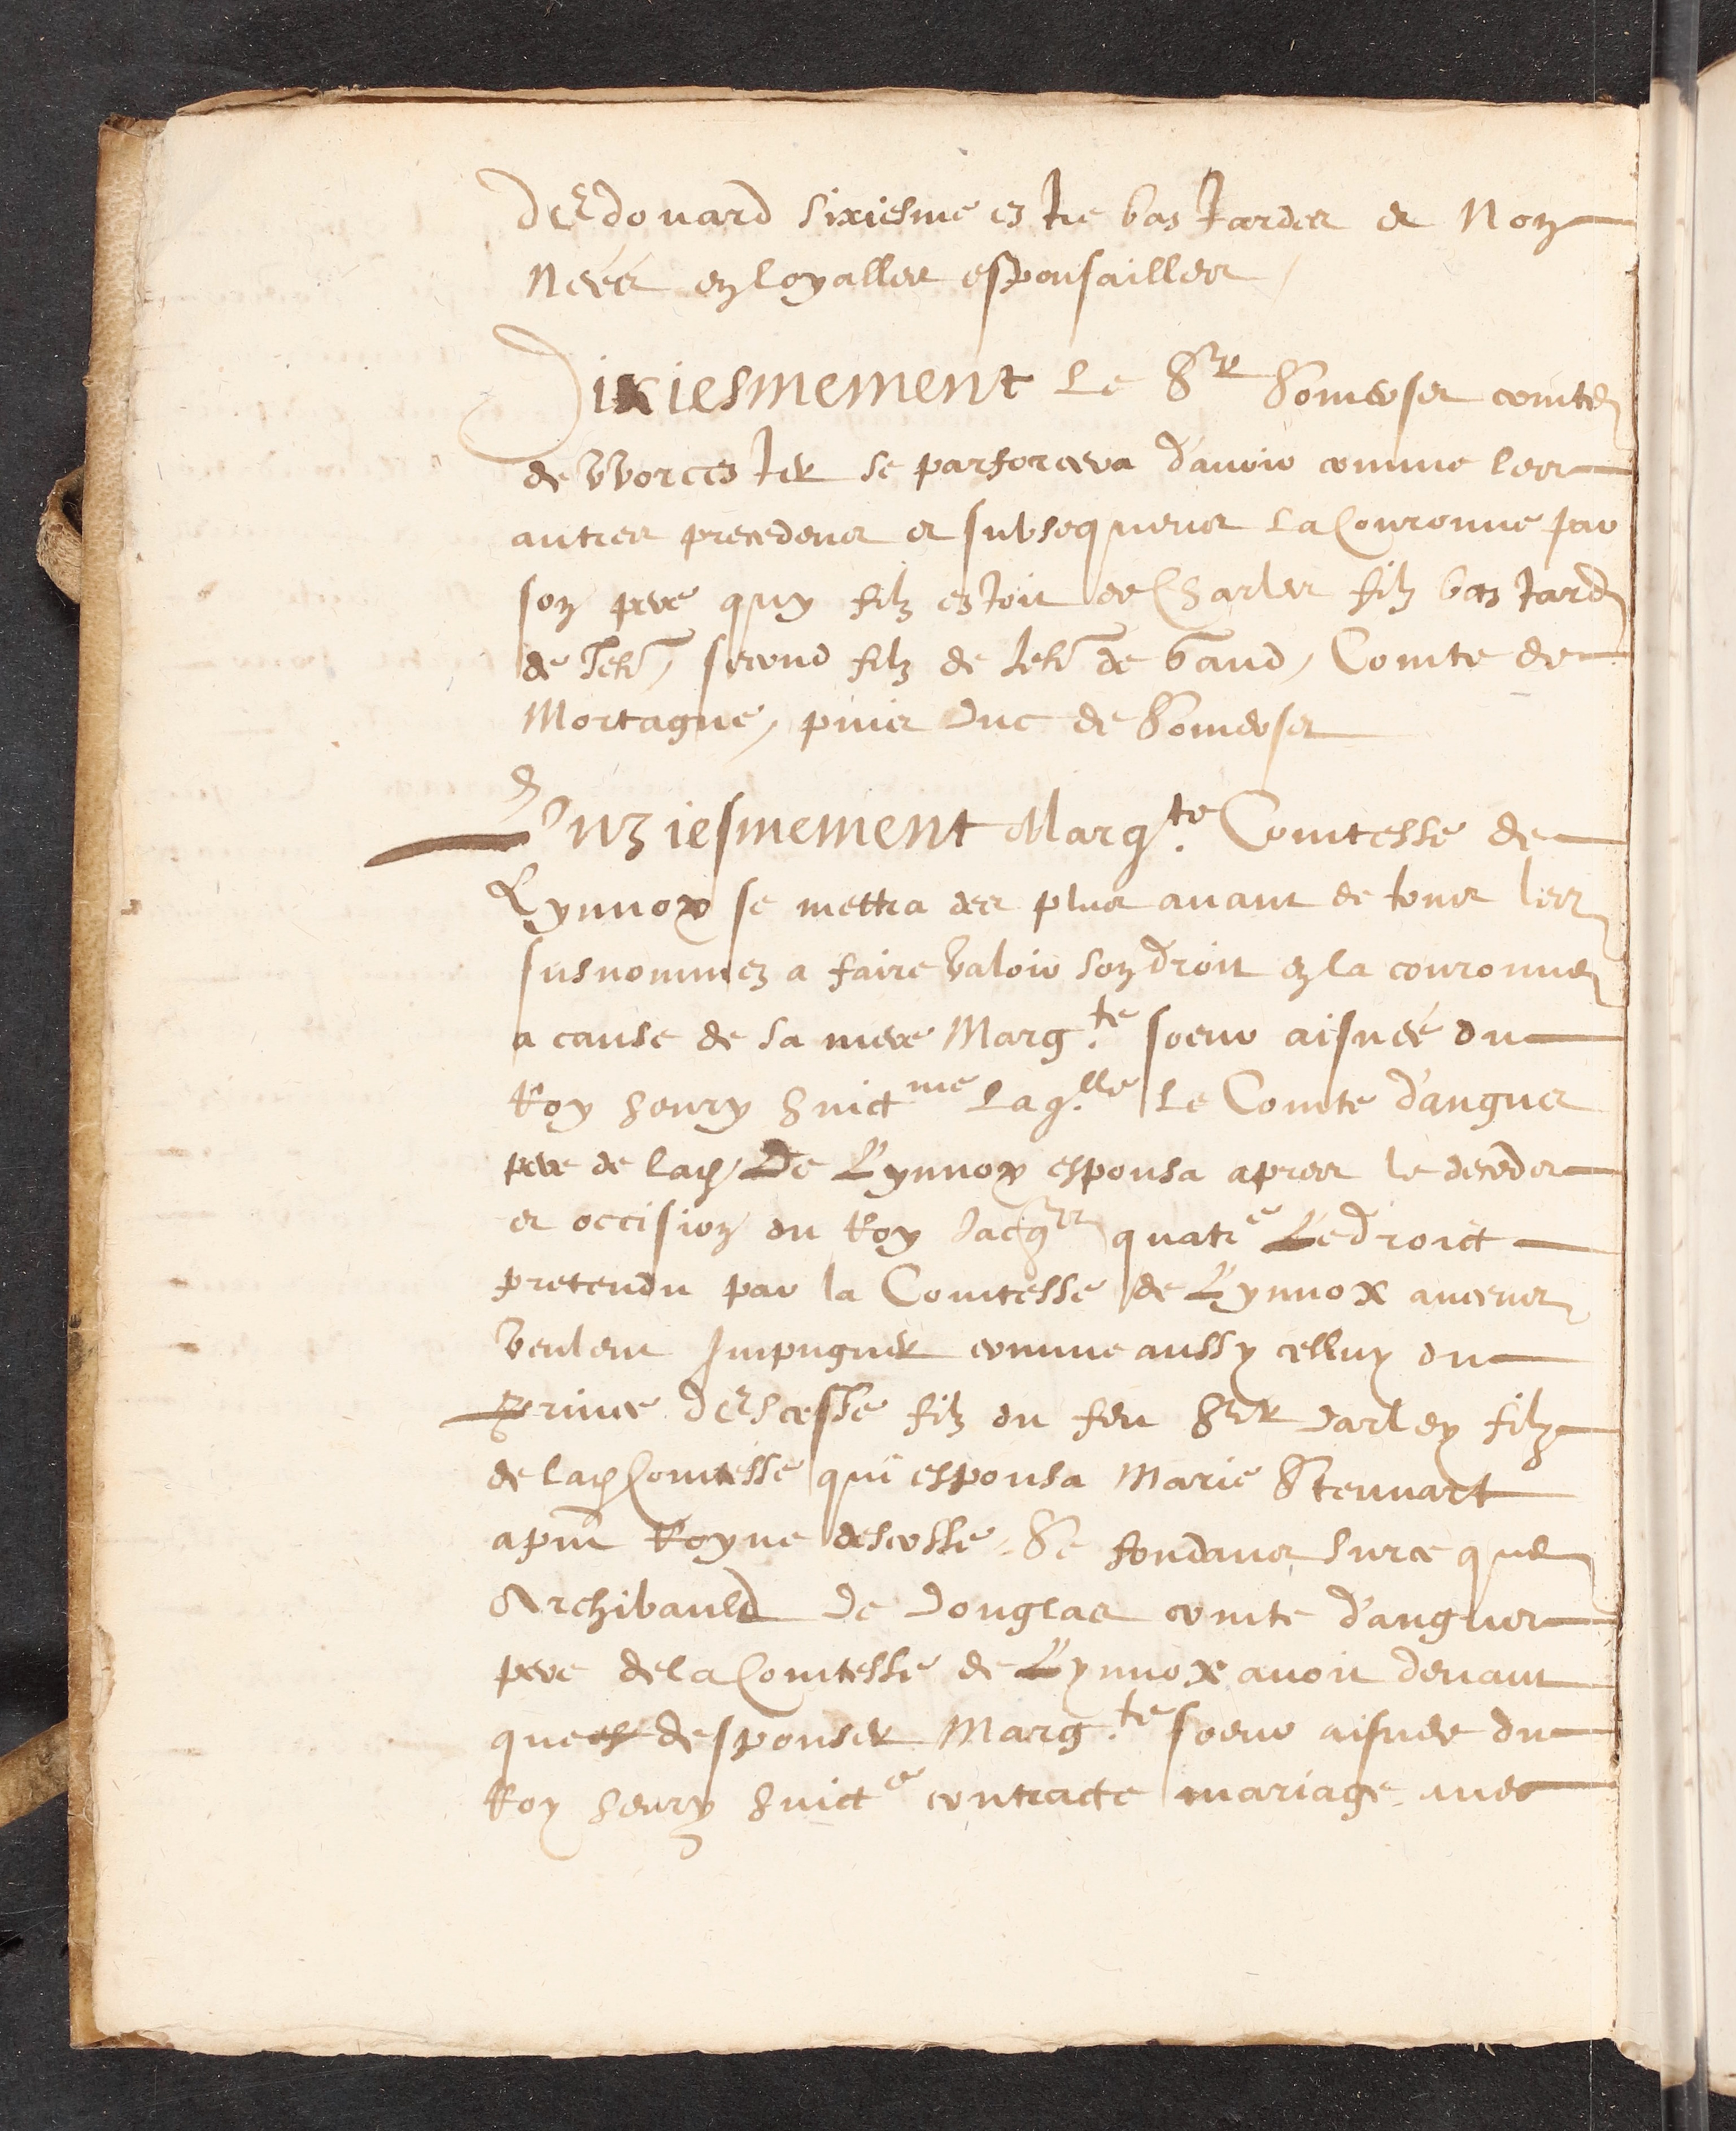 d'Edouard sixiesme estre bastardes et Non
Neées en loyalles espousailles /
Dixiesmement Le Sr Somerset comte
de VVorcester se parforcera d'auoir comme les
autres precedens et subsequens La Couronne par
son pere quy filz estoit de Charles filz bastard
de Jehan, second filz de Jehan de Gand, Comte de
Mortagne, puis duc de Somerset
Unziesmement Margte. Comtesse de
Lynnox se mettra des plus auant de tous les
susnommez a faire valoir son droit en la couronne
a cause de sa mere Margte. soeur aisneé du
Roy henry huictme Laqlle. Le Comte d'angus
pere de lad. De Lynnox espousa apres le deceder
et occision du Roy Jacqes quatre Le droict
pretendu par la Comtesse de Lynnox aucuns
veulent Impugner comme aussy celluy du
prince d'Escosse filz du feu Sr Darley filz
de lad. Comtesse qui espousa Marie Steuuart
apnt Royne descosse. Se fondans surce que
Archibauld De Douglas comte d'angus
pere dela Comtesse de Lynnox auoit deuant
que despouser Margte. soeur aisnee du
Roy henry huicte contracte mariage auec